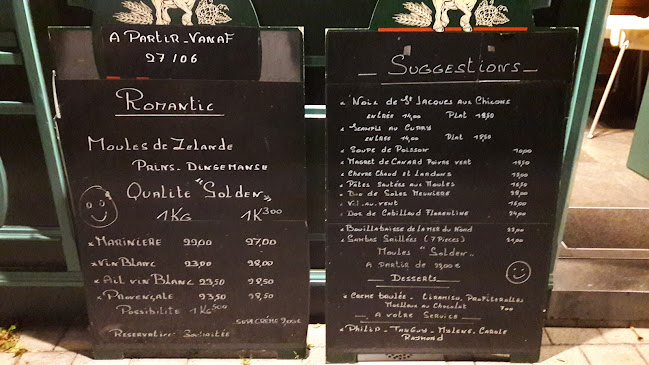 A PARTIR - VANAF
27/06
ROMANTIC
MOULES DE ZELANDE
PRINS - DINGEMANSE
QUALITÉ "GOLDEN"
1KG 1K300
* MARINIERE 22,00 27,00
* VIN BLANC 23,00 28,00
* AIL VIN BLANC 23,50 28,50
* PROVENÇALE 23,50 28,50
POSSIBILITÉ 1KG500
SUPP CRÈME
RESERVATION SOUHAITÉE
_ SUGGESTIONS _
* NOIX DE ST JACQUES AUX CHICONS
ENTRÉE 14,00 PLAT 18,50
* SCAMPIS AU CURRY
ENTRÉE 14,00 PLAT 18,50
* SOUPE DE POISSON 10,00
* MAGRET DE CANARD POIVRE VERT
* CHEVRE CHAUD ET LARDONS
* PÂTES SAUTÉES AUX MOULES
* DUO DE SOLES MEUNIERE
* VOL.AU.VENT
* DOS DE CABILLAUD FLORENTINE 24,00
* BOUILLABAISSE DE LA MER DU NORD
* GAMBAS GRILLÉES (7 PIECES)
MOULES "GOLDEN"
A PARTIR DE 22,00€
_ DESSERTS _
* CREME BRULÉE - TIRAMISU - PROFITEROLLES
MOELLEUX AU CHOCOLAT 7,00
_ A VOTRE SERVICE _
* PHILIP - TANGUY - MYLENE - CAROLE
RAYMOND